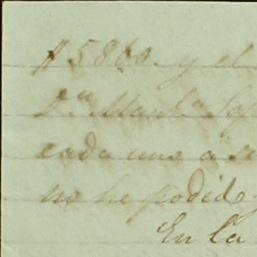 $5860. y el
D.ª Man.la
cada una a
no he podido
En la